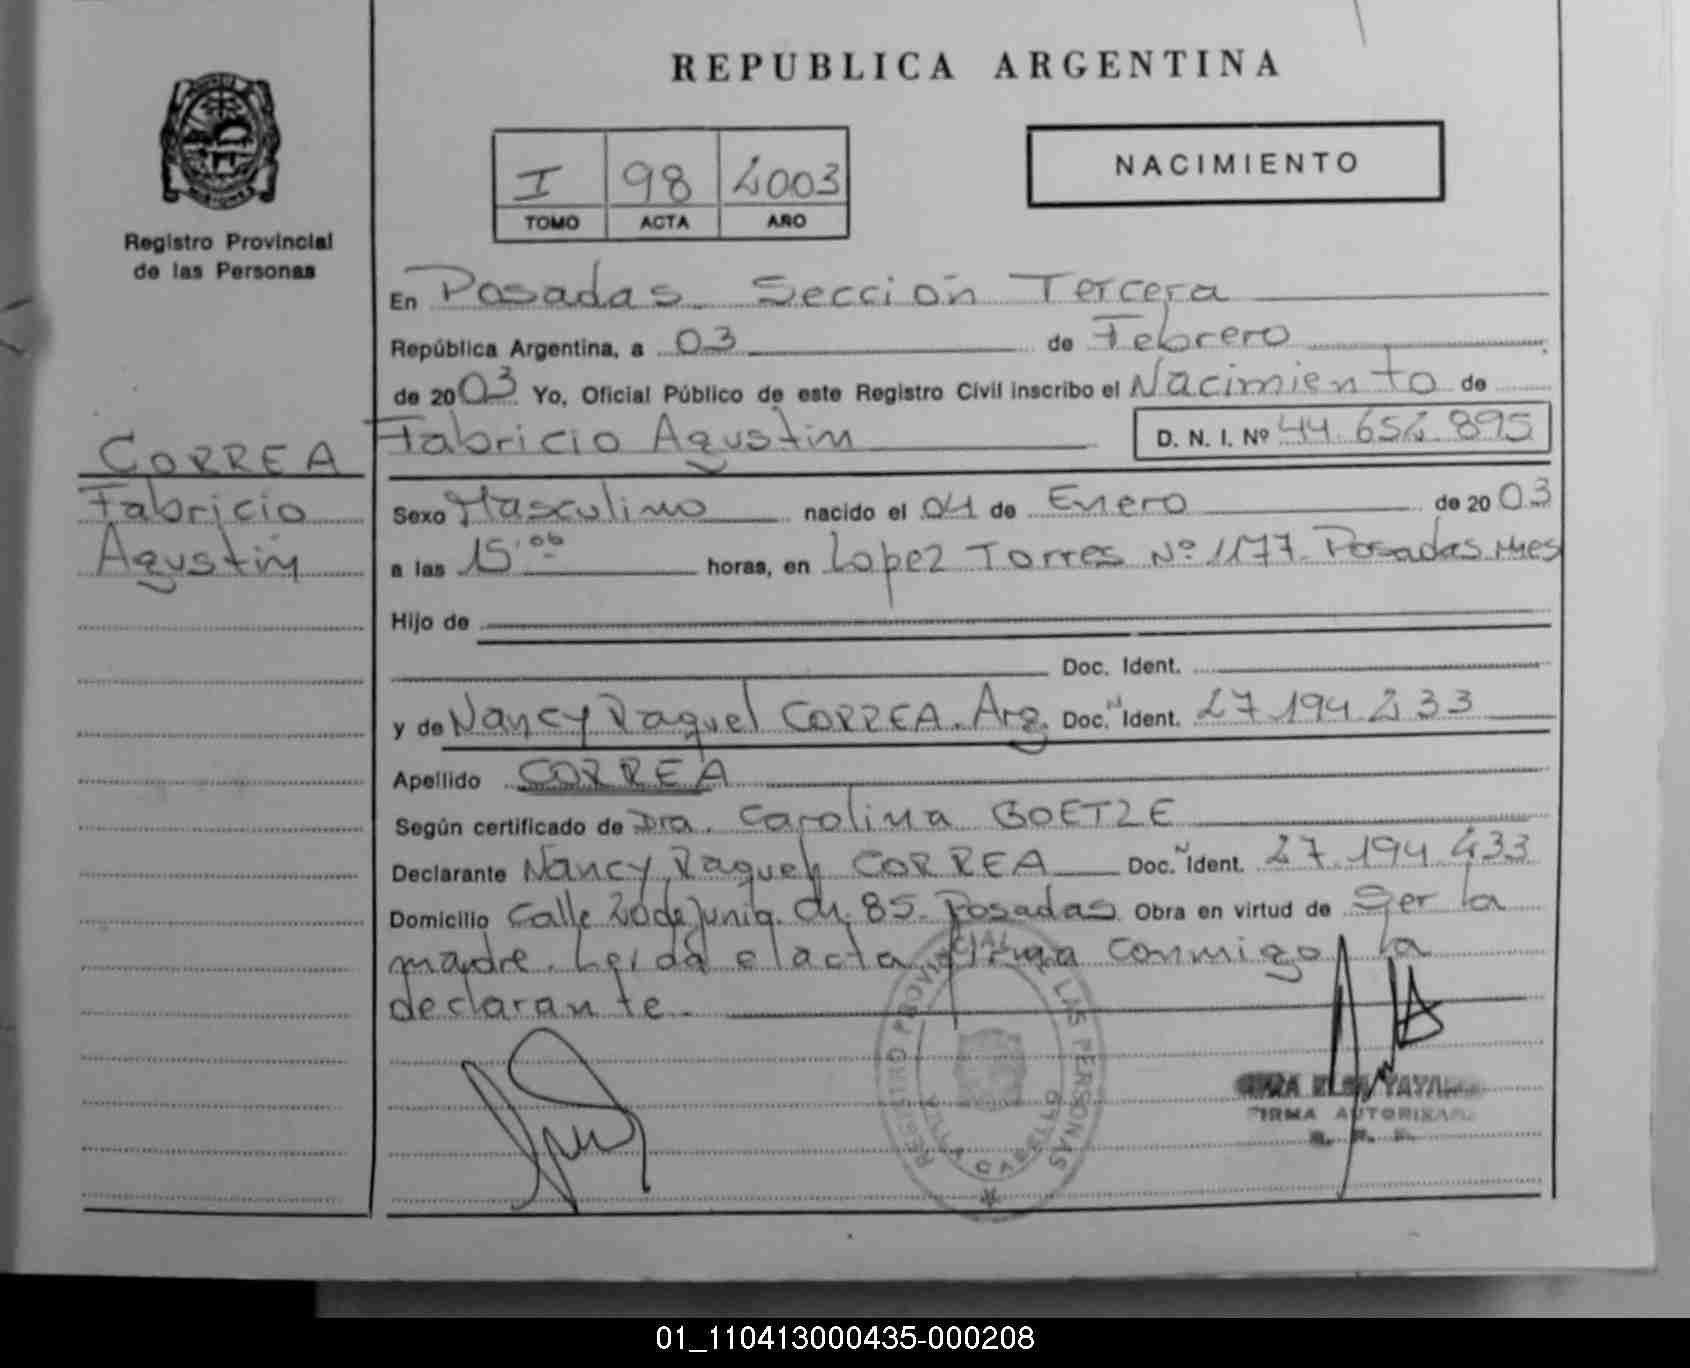 REPUBLICA ARGENTINA
I 98 2003
TOMO ACTA AÑO
NACIMIENTO
Registro Provincial
de las Personas
CORREA
Fabricio
Agustin
En Posadas Sección Tercera
República Argentina, a 03 de Febrero
de 2003 Yo, Oficial Público de este Registro Civil inscribo el Nacimiento de
Fabricio Agustin D. N. I. Nº 44.652.895
Sexo Masculino nacido el 04 de Enero de 2003
a las 15,00 horas, en Lopez Torres Nº 1177 Posadas Mnes
Hijo de
Doc. Ident.
y de Nancy Raquel CORREA. Arg. Doc. Ident. 27.194.233
Apellido CORREA
Según certificado de Dra. Carolina GOETZE
Declarante Nancy Raquel CORREA Doc. Ident. 27.194.233
Domicilio Calle 20 de Junio. Ch. 85. Posadas Obra en virtud de Ser la
madre. Leida el acta, firma conmigo la
declarante.
REGISTRO PROVINCIAL LAS PERSONAS
FIRMA AUTORIZADA
01_110413000435-000208